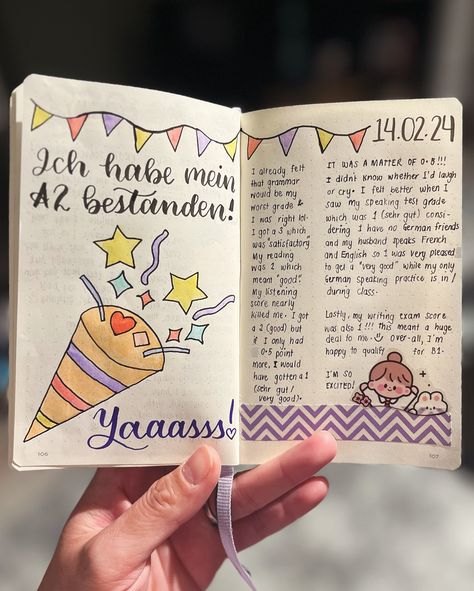 Ich habe mein
A2 bestanden!
Yaaasss!
106
14.02.24
I already felt
that grammar
would be my
worst grade &
I was right lol.
I got a 3 which
was "satisfactory".
My reading
was 2 which
meant "good".
My listening
score nearly
killed me. I got
a 2 (good) but
if I only had
0.5 point
more, I would
have gotten a 1
(sehr gut /
very good).
IT WAS A MATTER OF 0.5!!!
I didn't know whether I'd laugh
or cry. I felt better when I
saw my speaking test grade
which was 1 (sehr gut) consi-
dering I have no German friends
and my husband speaks French
and English so I was very pleased
to get a "very good" while my only
German speaking practice is in/
during class.
Lastly, my writing exam score
was also 1!!! This meant a huge
deal to me. Over-all, I'm
happy to qualify for B1.
I'M SO
EXCITED!
107